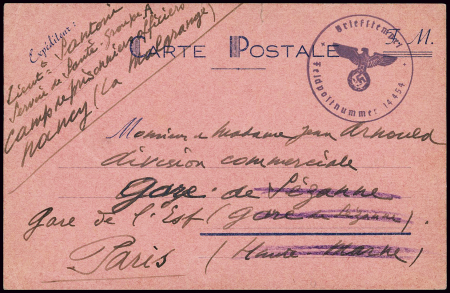 Expéditeur:
Lieut^t Santoni
Service de Santé. Groupe A
Camp de prisonniers officiers
Nancy (La Malgrange)
CARTE POSTALE
F. M.
Briefstempel
Feldpostnummer 14454
Monsieur & Madame Jean Arnould
division commerciale
Gare de Sézanne
Gare de l'Est (gare de Sézanne).
Paris (Haute Marne)